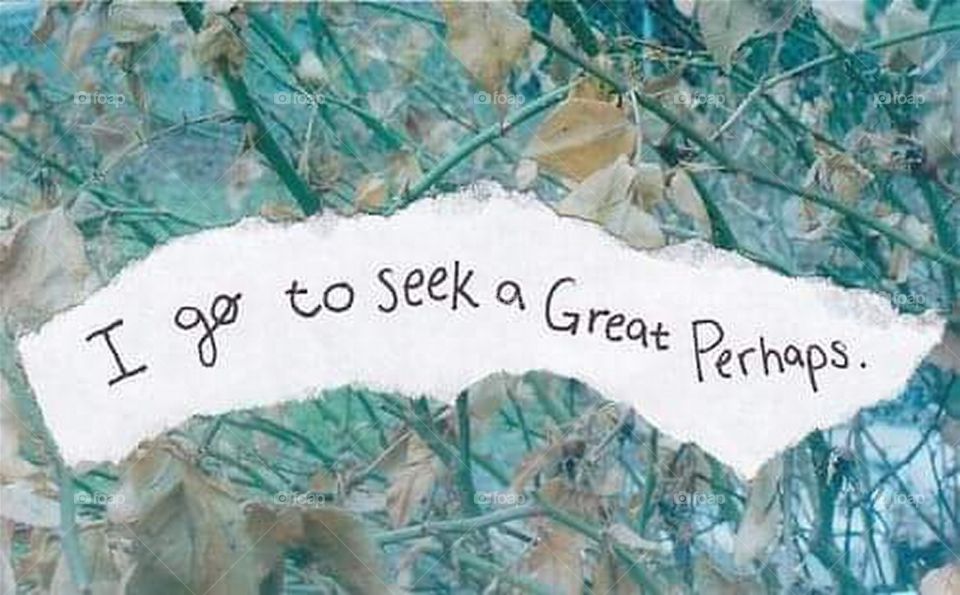 I go to seek a Great Perhaps.
foap foap foap foap foap
foap
foap foap foap foap foap